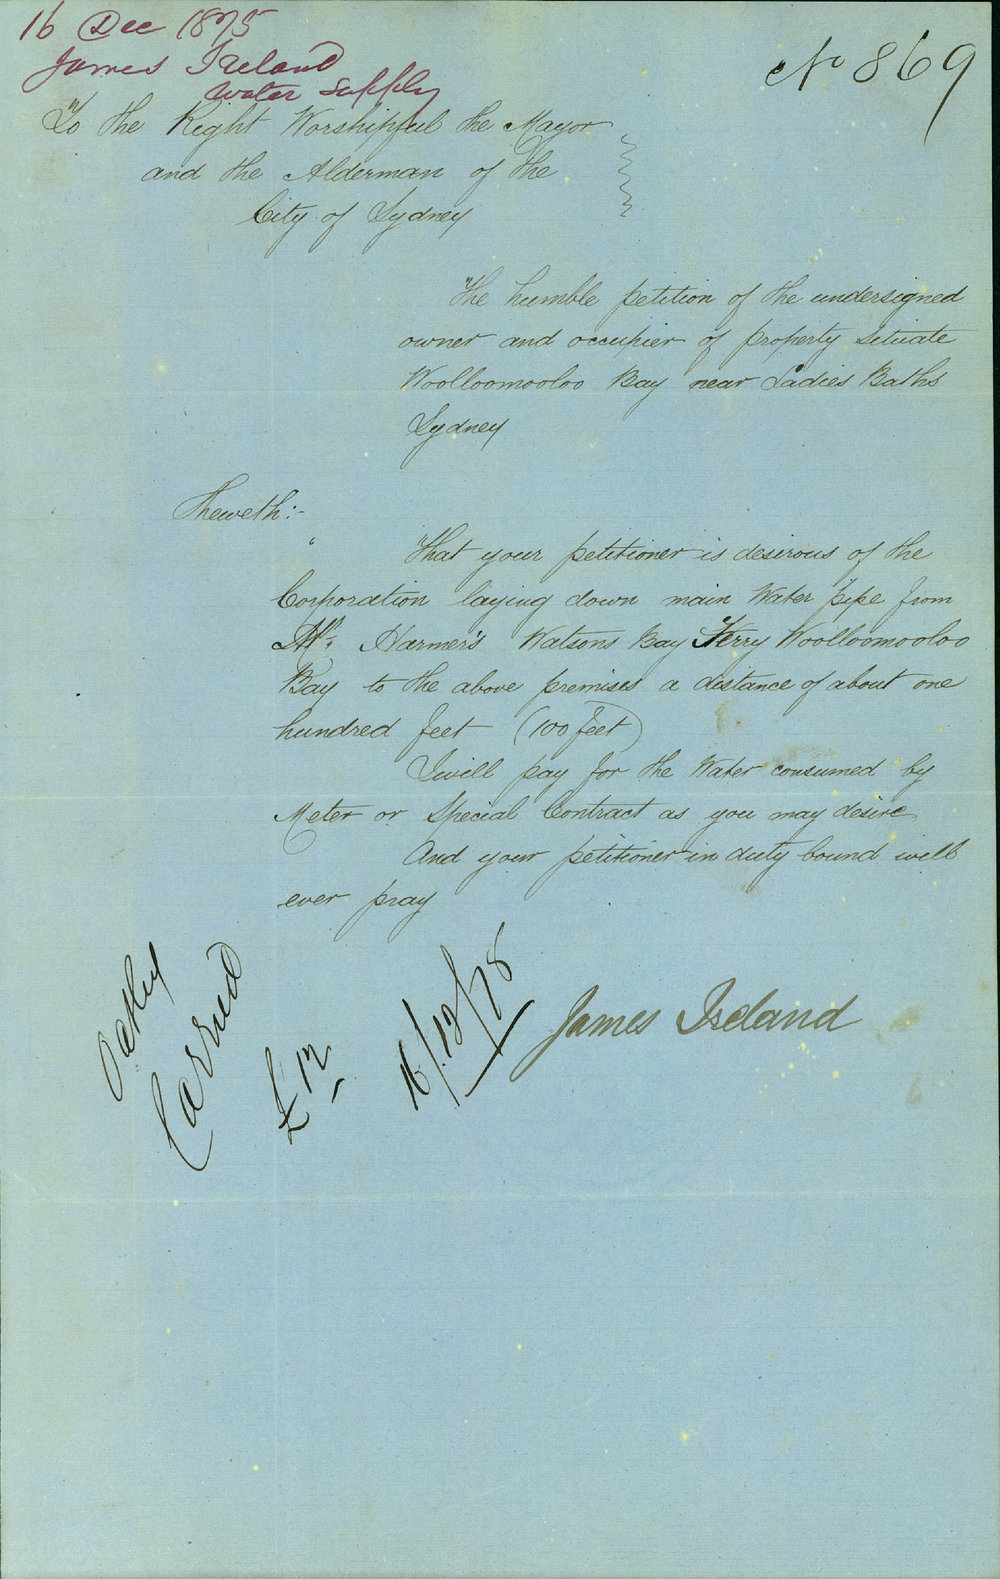 16 Dec 1875
James Ireland
Water Supply
No 869
To the Right Worshipful the Mayor
and the Alderman of the
City of Sydney
The humble petition of the undersigned
owner and occupier of property situate
Woolloomooloo Bay near Ladies Baths
Sydney
Sheweth:-
That your petitioner is desirous of the
Corporation laying down main Water pipe from
Mr. Harmer's Watsons Bay Ferry Woolloomooloo
Bay to the above premises a distance of about one
hundred feet (100 feet)
I will pay for the Water consumed by
Meter or Special Contract as you may desire
And your petitioner in duty bound will
ever pray
James Ireland
Carried
£12
16/12/75